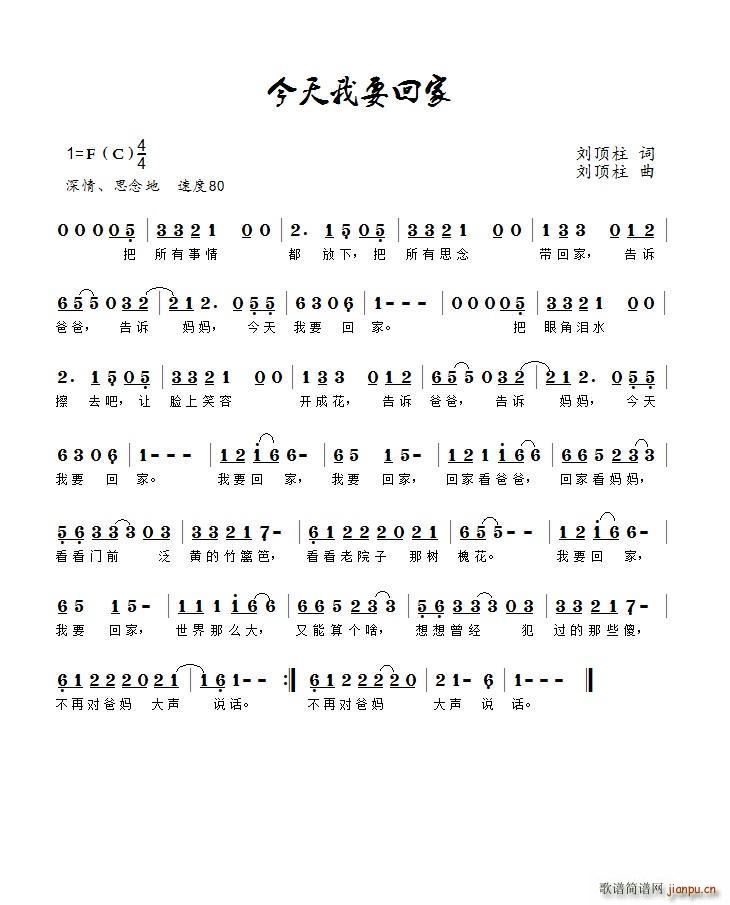 今天我要回家
1=F(C)4/4
刘顶柱 词
刘顶柱 曲
深情、思念地 速度80
0 0 0 0 0 5 | 3 3 2 1 0 0 | 2. 1 5 0 5 | 3 3 2 1 0 0 | 1 3 3 0 1 2 |
把 所有事情 都 放下,把 所有思念 带回家, 告诉
6 5 5 0 3 2 | 2 1 2. 0 5 5 | 6 3 0 6 | 1 - - - | 0 0 0 0 0 5 | 3 3 2 1 0 0 |
爸爸, 告诉 妈妈, 今天 我要 回 家。 把 眼角泪水
2. 1 5 0 5 | 3 3 2 1 0 0 | 1 3 3 0 1 2 | 6 5 5 0 3 2 | 2 1 2. 0 5 5 |
擦 去吧,让 脸上笑容 开成花, 告诉 爸爸, 告诉 妈妈, 今天
6 3 0 6 | 1 - - - | 1 2 1 6 6 - | 1 2 1 5 - | 1 2 1 1 6 6 | 6 6 5 2 3 3 |
我要 回 家。 我要回家, 我要 回家, 回家看爸爸, 回家看妈妈,
5 6 3 3 3 0 3 | 3 3 2 1 7 - | 6 1 2 2 2 0 2 1 | 6 5 5 - - | 1 2 1 6 6 - |
看看门前 泛 黄的竹篱笆, 看看老院子 那树 槐花。 我要回 家,
6 5 1 5 - | 1 1 1 1 6 6 | 6 6 5 2 3 3 | 5 6 3 3 3 0 3 | 3 3 2 1 1 - |
我要 回家, 世界那么大, 又能算个啥, 想想曾经 犯 过的那些傻,
6 1 2 2 2 0 2 1 | 1 6 1 - - :‖ 6 1 2 2 2 2 0 | 2 1 - 6 | 1 - - - ‖
不再对爸妈 大声 说话。 不再对爸妈 大声 说 话。
歌谱简谱网 jianpu.cn